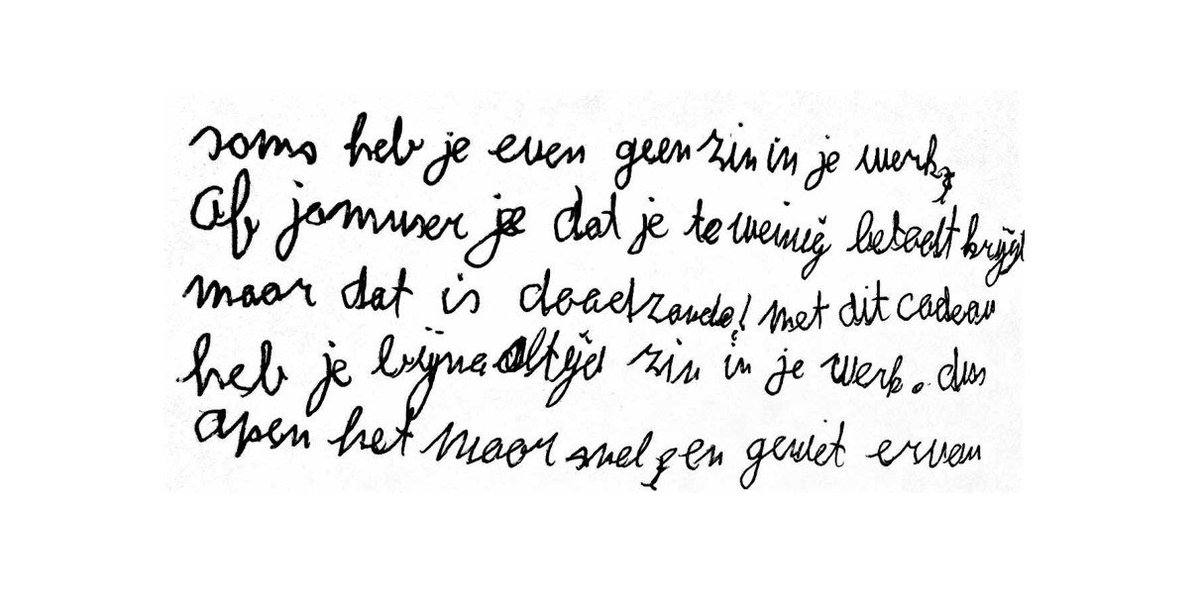 soms heb je even geen zin in je werk,
Of jammer je dat je te weinig betaalt krijgt
maar dat is doodzonde! met dit cadeau
heb je bijna altijd zin in je werk. dus
open het maar snel, en geniet ervan